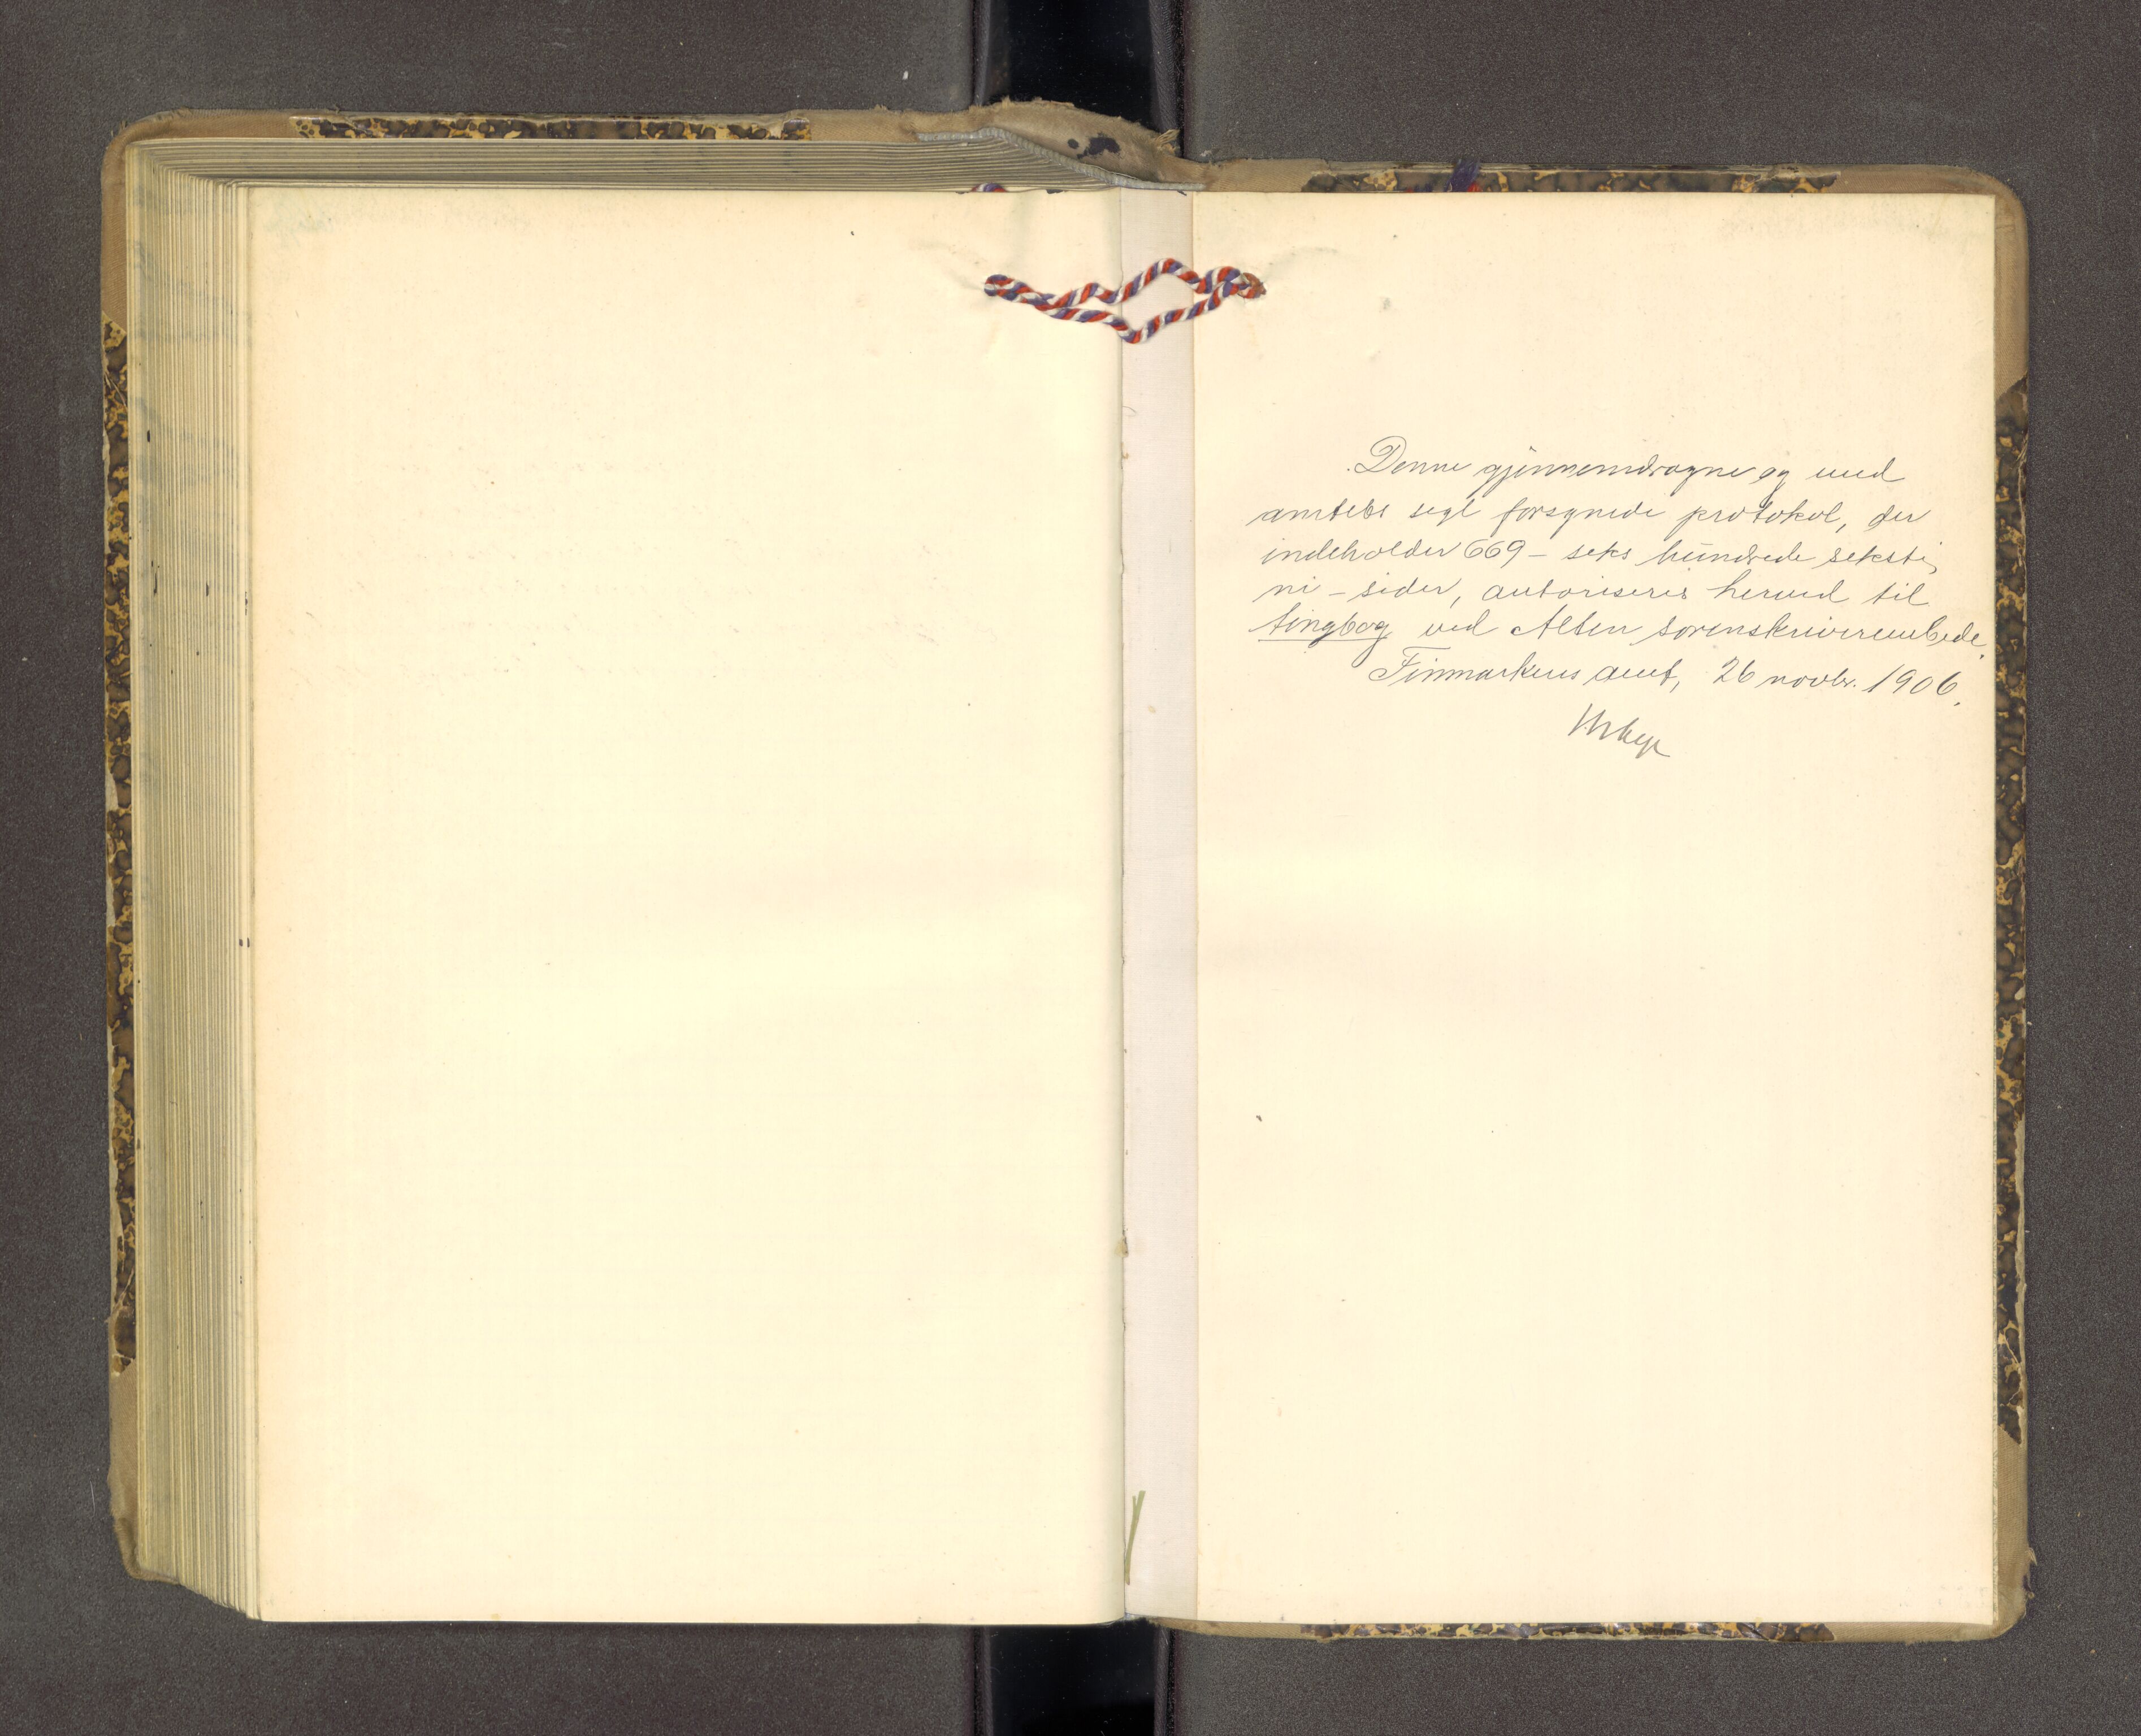 Denne gjennemdragne og med
amtets segl forsynede protokol, der
indeholder 669 – seks hundrede seksti
ni – sider, autoriseres herved til
tingbog ved Alten sorenskriverembede.
Finmarkens amt, 26 novbr. 1906.